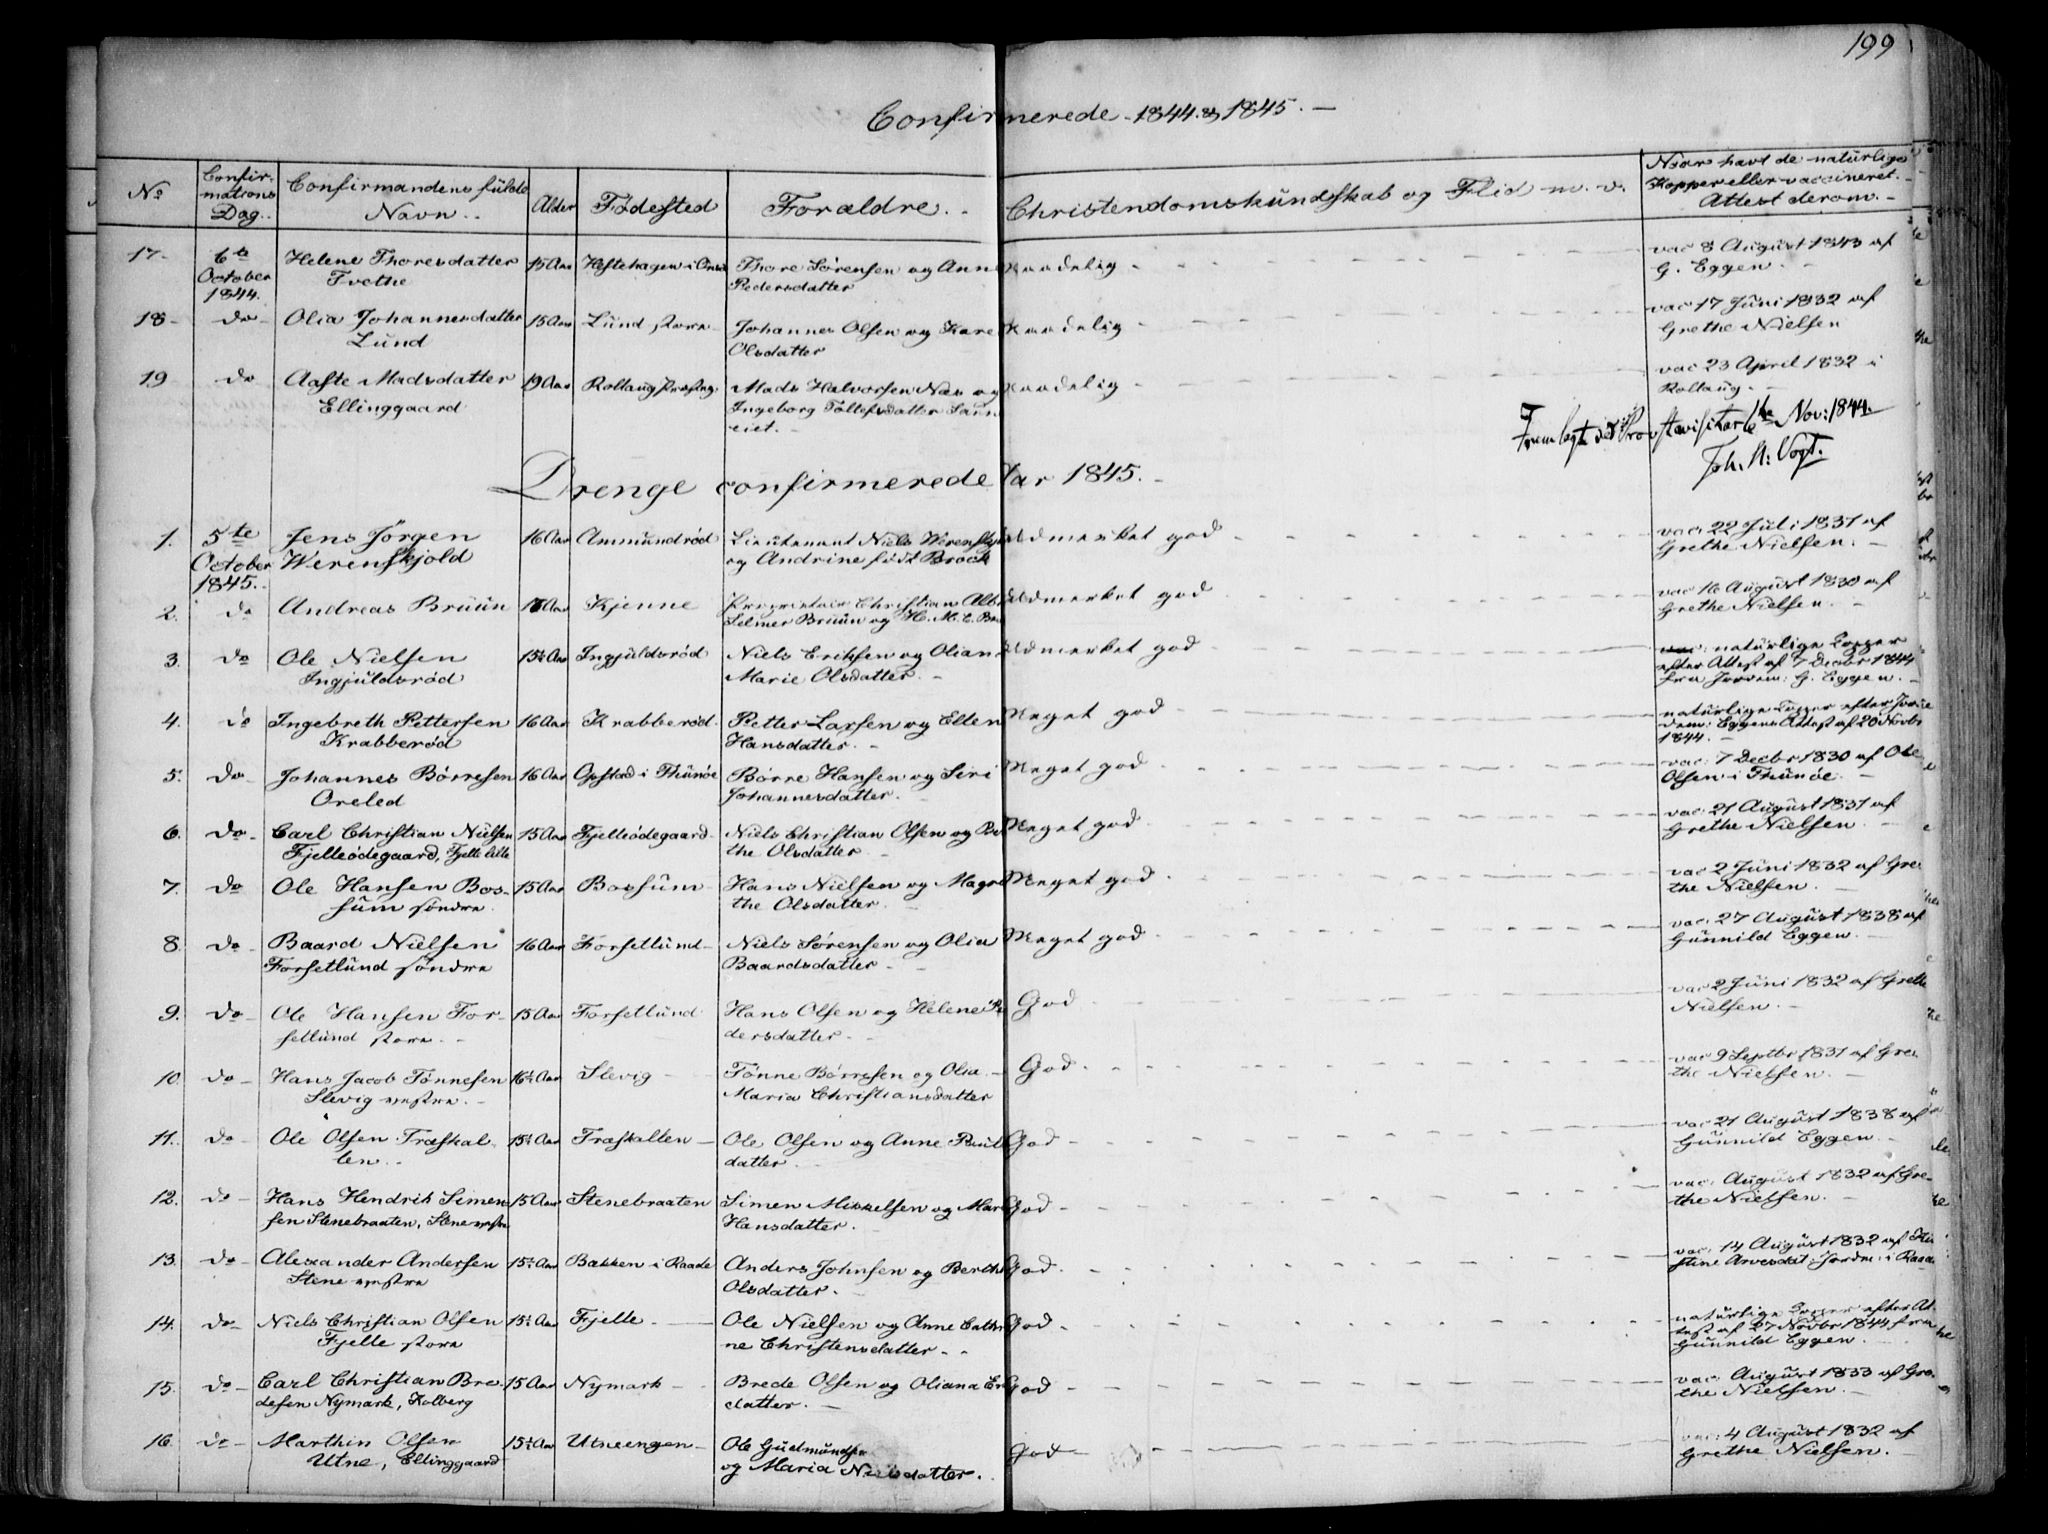 199
Confirmerede 1844 & 1845.
No
Confir-
mations
Dag.
Confirmandens fulde
Navn.
Alder
Fødested
Forældre.
Christendomskundskab og Flid m. v.
Naar havt de naturlige
Kopper eller vaccineret.
Attest derom.
17. 6te Helene Thoresdatter 15 Aar Hestehagen i Onsø Thore Sørensen og Anne Maadelig vac 8 August 1843 af
October Tvethe Pedersdatter G. Eggen.
1844.
18 do Olia Johannesdatter 15 Aar Lund store Johannes Olsen og Kare Maadelig vac 17 Juni 1832 af
Lund Olsdatter Grethe Nielsen
19 do Aaste Madsdatter 19 Aar Rollaug Præsteg Mads Halvorsen Næs og Maadelig vac 23 April 1832 i
Ellinggaard Ingeborg Tollefsdatter Rollaug.
eiet.
Fremlagt ved Provstevisitats 6te Nov: 1844.
Joh. N: Vogt.
Drenge confirmerede Aar 1845.
1. 5te Jens Jørgen 16 Aar Ammundrød Lieutenant Niels Werenskjo Udmerket god vac. 22 Juli 1831 af
October Werenskjold og Andrine født Brock Grethe Nielsen.
1845.
2. do Andreas Bruun Aar Kjenne Proprietair Christian Alb Udmerket god vac 16 August 1830 af
Selmer Bruun og H. M. C. Grethe Nielsen.
3. do Ole Nielsen 15½ Aar Ingjuldsrød Niels Eriksen og Olian Udmerket god naturlige Kopper
Ingjuldsrød Marie Olsdatter. efter Attest af 7 Decbr 1844
fra Jordem: G. Eggen.
4. do Ingebreth Pettersen 16 Aar Krabberød. Petter Larsen og Ellen Meget god naturlige Kopper efter Jor
Krabberød Hansdatter. dem: Eggens Attest af 20 Novbr
1844.
5. do Johannes Børresen 16 Aar Opstad i Thunøe Børre Hansen og Siri Meget god vac: 7 Decbr 1830 af Ole
Oreled Johannesdatter. Olsen i Thunøe.
6. do Carl Christian Nielsen 15 Aar Fjelleødegaard Niels Christian Olsen og Meget god vac 21 August 1831 af
Fjelleødegaard, Fjelle lille the Olsdatter Grethe Nielsen.
7. do Ole Hansen Bos- 15 Aar Bossum Hans Nielsen og Magre Meget god vac 2 Juni 1832 af Gre
sum søndre the Olsdatter. the Nielsen.
8. do Baard Nielsen 16 Aar Forsetlund Niels Sørensen og Olia Meget god vac. 27 August 1838 af
Forsetlund søndre Baardsdatter Gunnild Eggen.
9. do Ole Hansen For- 15 Aar Forsetlund Hans Olsen og Helene Pe God vac 2 Juni 1832 af Grethe
setlund store. dersdatter. Nielsen.
10. do Hans Jacob Tønnesen 16½ Aar Slevig Tønne Børresen og Olia God vac 9 Septbr 1831 af Gre
Slevig vestre. Maria Christiansdatter the Nielsen.
11. do Ole Olsen Træskal- 15½ Aar Træskalten Ole Olsen og Anne Paul God vac 21 August 1838 af
ten. datter Gunnild Eggen.
12. do Hans Hendrik Simen 15 Aar Stenebraaten Simen Mikkelsen og Mar God vac. August 1832 af Gre-
sen Stenebraaten, Stene vestre Hansdatter. the Nielsen.
13. do Alexander Andersen 15½ Aar Bakken i Raade Anders Johnsen og Berthe God vac. 14 August 1832 af Ki
Stene vestre Olsdatter. stine Arvesdat: Jordm: i Raade
14. do Niels Christian Olsen 15½ Aar Fjelle Ole Nielsen og Anne Cathri God naturlige Kopper efter At-
Fjelle store ne Christensdatter. test af 27 Novbr 1844 fra
Gunnild Eggen
15. do Carl Christian Bre- 15 Aar Nymark Brede Olsen og Oliana Er God vac August 1833 af Gre-
desen Nymark, Kolberg datter. the Nielsen.
16. do Marthin Olsen 15½ Aar Utneengen Ole Gudmundsen God vac: 4 August 1832 af
Utne, Ellinggaard og Maria Nielsdatter. Grethe Nielsen.